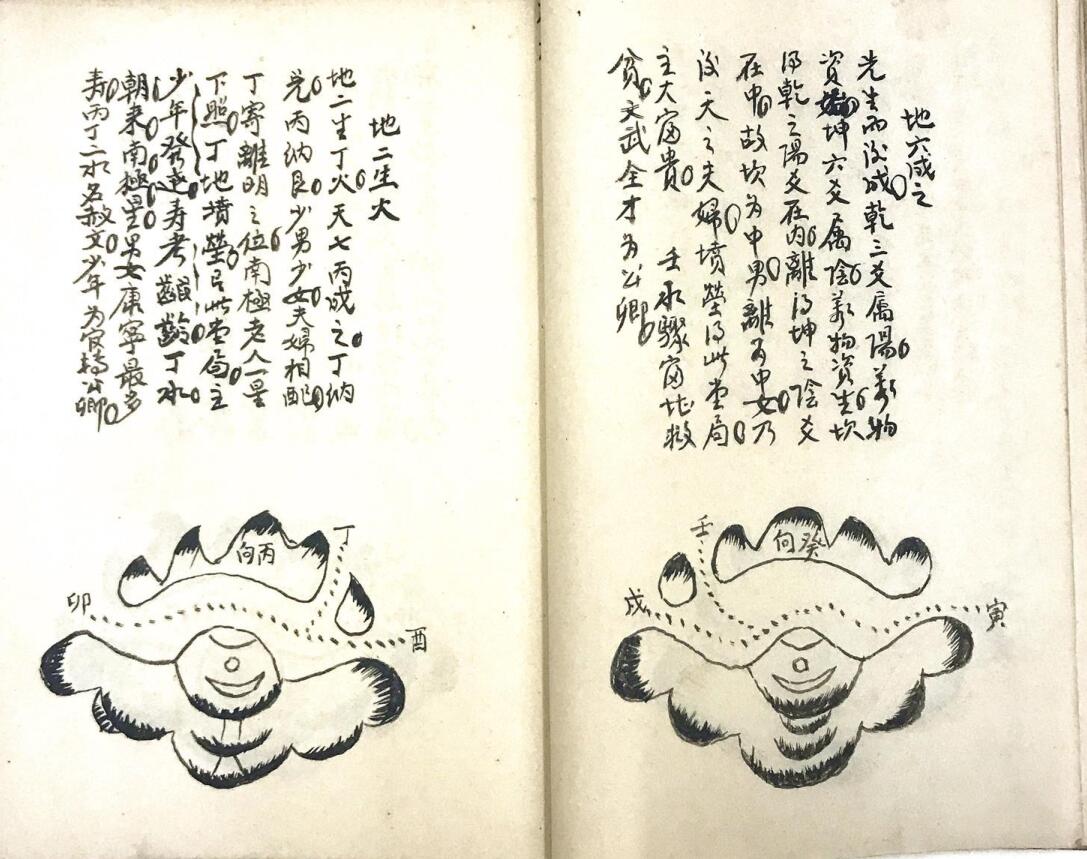 地六成之
先生而後成乾三爻属陽萬物
資始坤六爻属陰萬物資生坎
得乾之陽爻在内離得坤之陰爻
在中故坎為中男離為中女乃
後天之夫婦墳塋得此堂局
主大富貴 壬水驟富北救
貧文武全才為公卿
癸向
壬
戌
寅
地二生火
地二生丁火天七丙成之丁納
兑丙納艮少男少女夫婦相配
丁寄離明之位南極老人一星
下照丁地墳塋得此堂局主
少年發達寿考齠齡丁水
朝来南極星男女康寧最多
寿丙丁二水名赦文少年為官持公卿
丙向
丁
卯
酉